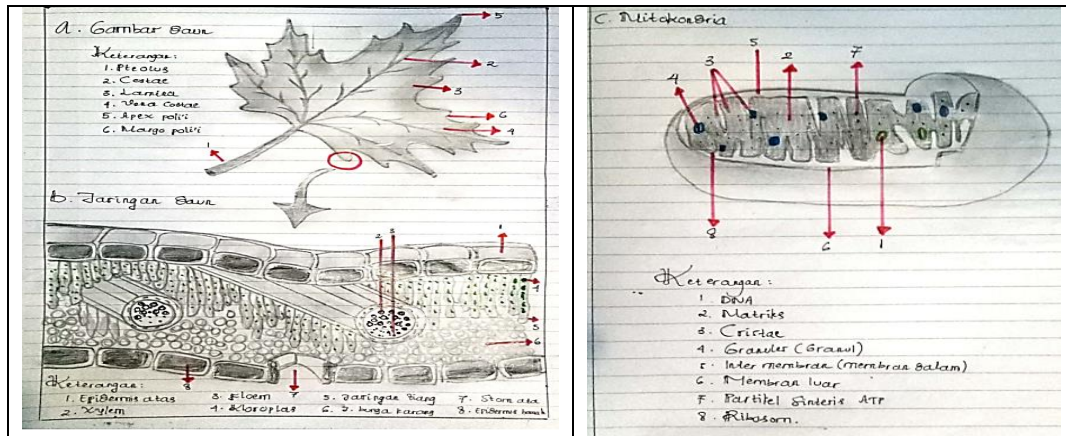 a. Gambar daun
Keterangan:
1. Pteolus
2. Costae
3. Lamina
4. Vena Costae
5. Apex poli'i
6. Margo poli'i
5
2
3
6
4
1
b. Jaringan daun
2 3 1
4
5
6
8 7
Keterangan:
1. Epidermis atas 3. Floem 5. Jaringan tiang 7. Stomata
2. Xylem 4. Kloroplas 6. J. bunga karang 8. Epidermis bawah
C. Mitokondria
5
3 2 7
4
8 6 1
Keterangan:
1. DNA
2. Matriks
3. Cristae
4. Granules (Granul)
5. Inter membran (membran dalam)
6. Membran luar
7. Partikel Sintesis ATP
8. Ribosom.